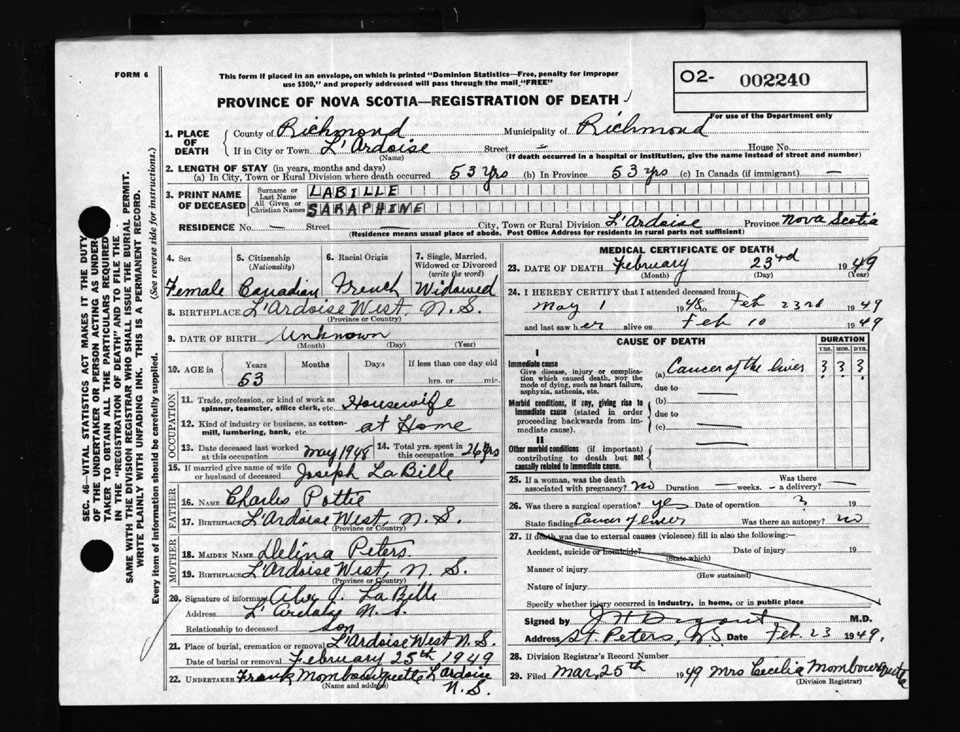 FORM 6
This form if placed in an envelope, on which is printed "Dominion Statistics—Free, penalty for improper
use $300," and properly addressed will pass through the mail "FREE"
O2- 002240
For use of the Department only
PROVINCE OF NOVA SCOTIA—REGISTRATION OF DEATH
1. PLACE OF DEATH
County of Richmond Municipality of Richmond
If in City or Town L'Ardoise Street – House No.
(Name) (If death occurred in a hospital or institution, give the name instead of street and number)
2. LENGTH OF STAY (in years, months and days)
(a) In City, Town or Rural Division where death occurred 53 yrs (b) In Province 53 yrs (c) In Canada (if immigrant) —
3. PRINT NAME OF DECEASED
Surname or Last Name LABILLE
All Given or Christian Names SARAPHINE
RESIDENCE No. — Street — City, Town or Rural Division L'Ardoise Province Nova Scotia
(Residence means usual place of abode. Post Office Address for residents in rural parts not sufficient)
4. Sex 5. Citizenship (Nationality) 6. Racial Origin 7. Single, Married, Widowed or Divorced (write the word)
Female Canadian French Widowed
8. BIRTHPLACE L'Ardoise West, N. S.
(Province or Country)
9. DATE OF BIRTH Unknown
(Month) (Day) (Year)
10. AGE in Years Months Days If less than one day old
53 hrs. or min.
OCCUPATION
11. Trade, profession, or kind of work as spinner, teamster, office clerk, etc. Housewife
12. Kind of industry or business, as cotton-mill, lumbering, bank, etc. at Home
13. Date deceased last worked at this occupation May 1948 14. Total yrs. spent in this occupation 26 yrs
15. If married give name of wife or husband of deceased Joseph LaBille
FATHER
16. NAME Charles Pottie
17. BIRTHPLACE L'Ardoise West, N. S.
(Province or Country)
MOTHER
18. MAIDEN NAME Delina Peters.
19. BIRTHPLACE L'Ardoise West, N. S.
(Province or Country)
20. Signature of informant J. LaBille
Address N. S.
Relationship to deceased son
21. Place of burial, cremation or removal L'Ardoise West N. S.
Date of burial or removal February 25th 1949
22. UNDERTAKER Frank Mombourquette L'ardoise
(Name and address) N. S.
MEDICAL CERTIFICATE OF DEATH
23. DATE OF DEATH February 23rd 1949
(Month) (Day) (Year)
24. I HEREBY CERTIFY that I attended deceased from:
May 1 1948 to Feb 23rd 1949
and last saw her alive on Feb 10 1949
CAUSE OF DEATH
DURATION
YRS. MOS. DYS.
I
Immediate cause
Give disease, injury or complication which caused death, NOT the mode of dying, such as heart failure, asphyxia, asthenia, etc.
(a) Cancer of the liver ? ? ?
due to
Morbid conditions, if any, giving rise to immediate cause (stated in order proceeding backwards from immediate cause).
(b)
due to
(c)
II
Other morbid conditions (if important) contributing to death but not causally related to immediate cause.
25. If a woman, was the death associated with pregnancy? no Duration — weeks. Was there a delivery? —
26. Was there a surgical operation? yes Date of operation ? 19
State finding Cancer of liver Was there an autopsy? no
27. If death was due to external causes (violence) fill in also the following:—
Accident, suicide or homicide? Date of injury 19
(State which)
Manner of injury
(How sustained)
Nature of injury
Specify whether injury occurred in industry, in home, or in public place
Signed by M.D.
Address St. Peters, N.S. Date Feb. 23 1949.
28. Division Registrar's Record Number
29. Filed Mar, 25th 1949 Mrs Cecilia Mombourquette
(Division Registrar)
SEC. 46—VITAL STATISTICS ACT MAKES IT THE DUTY
OF THE UNDERTAKER OR PERSON ACTING AS UNDER-
TAKER TO OBTAIN ALL THE PARTICULARS REQUIRED
IN THE "REGISTRATION OF DEATH" AND TO FILE THE
SAME WITH THE DIVISION REGISTRAR WHO SHALL ISSUE THE BURIAL PERMIT.
WRITE PLAINLY WITH UNFADING INK. THIS IS A PERMANENT RECORD.
Every item of information should be carefully supplied. (See reverse side for instructions.)